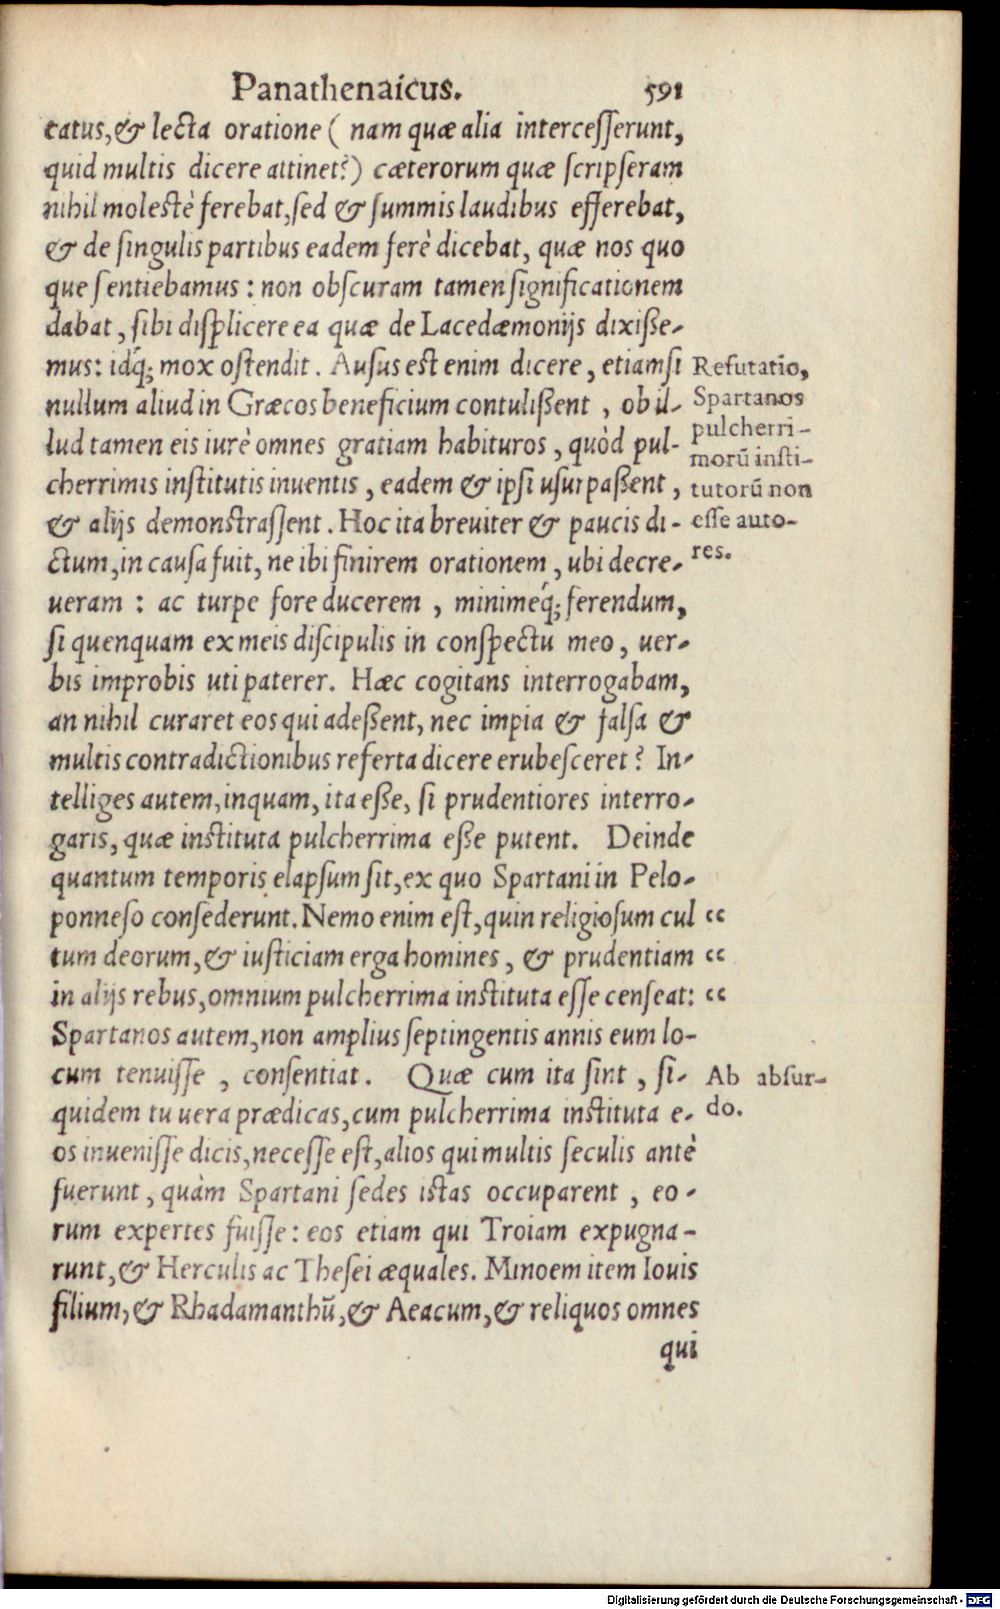 Panathenaicus. 591
tatus, & lecta oratione ( nam quæ alia intercesserunt,
quid multis dicere attinet?) cæterorum quæ scripseram
nihil molestè ferebat, sed & summis laudibus efferebat,
& de singulis partibus eadem ferè dicebat, quæ nos quo
que sentiebamus : non obscuram tamen significationem
dabat, sibi displicere ea quæ de Lacedæmonijs dixiße-
mus: idq́; mox ostendit. Ausus est enim dicere, etiamsi
nullum aliud in Græcos beneficium contulißent , ob il-
lud tamen eis iurè omnes gratiam habituros, quòd pul-
cherrimis institutis inuentis, eadem & ipsi usurpaßent,
& alijs demonstrassent. Hoc ita breuiter & paucis di-
ctum, in causa fuit, ne ibi finirem orationem, ubi decre-
ueram : ac turpe fore ducerem , minimeq́; ferendum,
si quenquam ex meis discipulis in conspectu meo, uer-
bis improbis uti paterer. Hæc cogitans interrogabam,
an nihil curaret eos qui adeßent, nec impia & falsa &
multis contradictionibus referta dicere erubesceret? In-
telliges autem, inquam, ita eße, si prudentiores interro-
garis, quæ instituta pulcherrima eße putent. Deinde
quantum temporis elapsum sit, ex quo Spartani in Pelo-
ponneso consederunt. Nemo enim est, quin religiosum cul
tum deorum, & iusticiam erga homines, & prudentiam
in alijs rebus, omnium pulcherrima instituta esse censeat:
Spartanos autem, non amplius septingentis annis eum lo-
cum tenuisse , consentiat. Quæ cum ita sint, si-
quidem tu uera prædicas, cum pulcherrima instituta e-
os inuenisse dicis, necesse est, alios qui multis seculis antè
fuerunt, quàm Spartani sedes istas occuparent, eo-
rum expertes fuisse: eos etiam qui Troiam expugna-
runt, & Herculis ac Thesei æquales. Minoem item Iouis
filium, & Rhadamanthū, & Aeacum, & reliquos omnes
qui
Refutatio,
Spartanos
pulcherri-
morū insti-
tutorū non
esse auto-
res.
cc
cc
cc
Ab absur-
do.
Digitalisierung gefördert durch die Deutsche Forschungsgemeinschaft - DFG